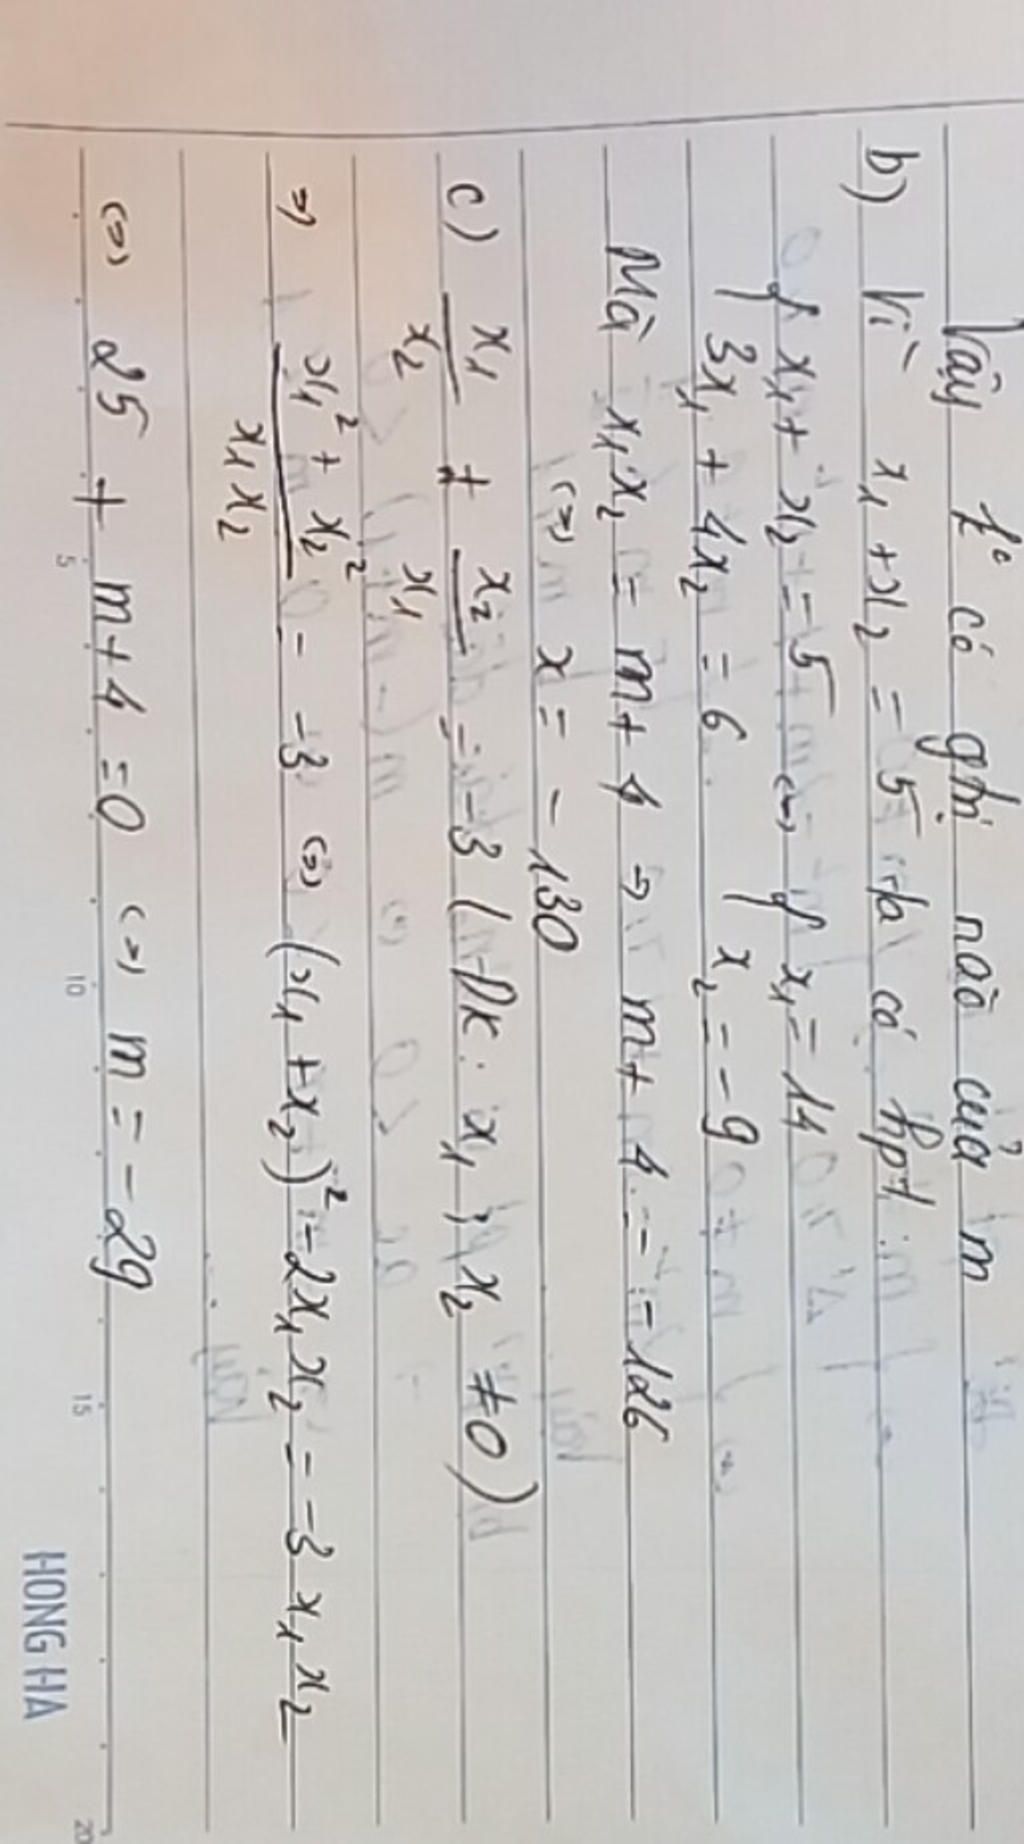 Vậy k° có gtrị nào của m
b) Vì x₁ + x₂ = 5 ta có hpt
{ x₁ + x₂ = 5 <=> { x₁ = 14
{ 3x₁ + 4x₂ = 6 { x₂ = -9
Mà x₁x₂ = m + 4 => m + 4 = -126
<=> x = -130
c) x₁/x₂ + x₂/x₁ = -3 (ĐK: x₁; x₂ ≠ 0)
=> (x₁² + x₂²)/(x₁x₂) = -3 <=> (x₁ + x₂)² - 2x₁x₂ = -3x₁x₂
<=> 25 + m + 4 = 0 <=> m = -29
5 10 15 20
HONG HA